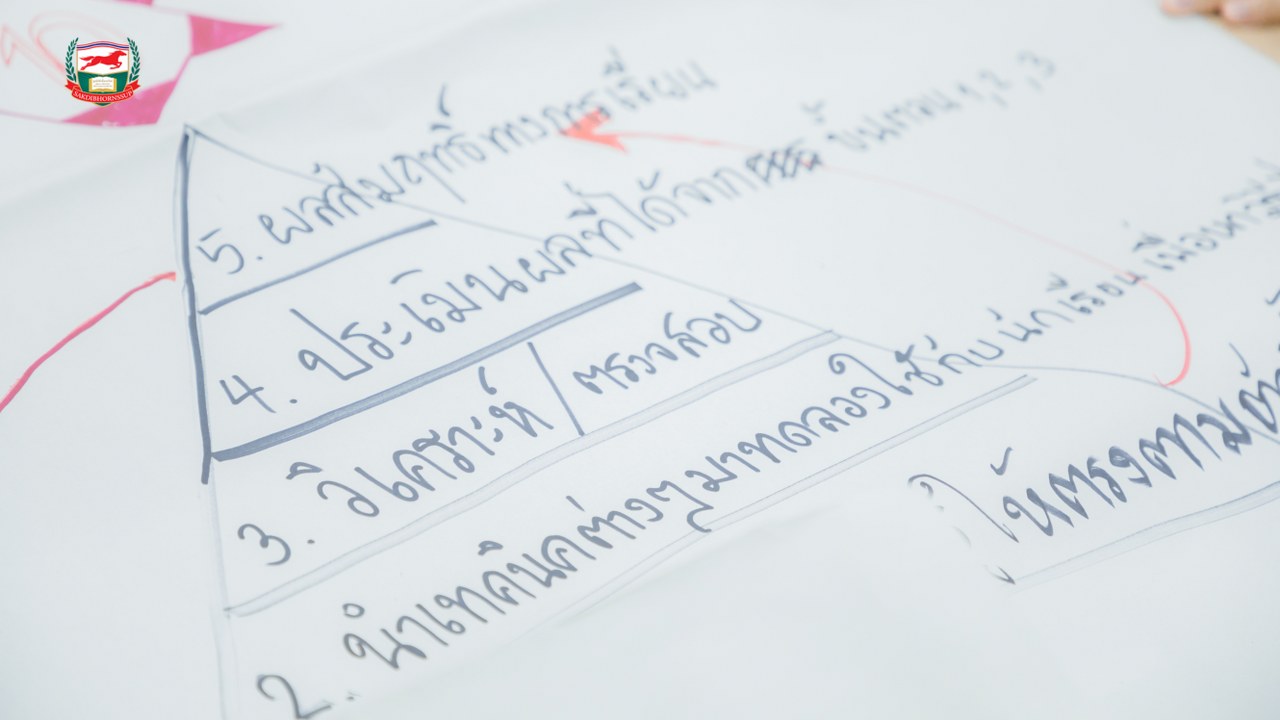 SAKDIBHORNSSUP
5. ผลสัมฤทธิ์ทางการเรียน
4. ประเมินผลที่ได้จาก ขั้นตอน 1, 2, 3
3. วิเคราะห์ / ตรวจสอบ
2. นำเทคนิคต่างๆ มาทดลองใช้กับ นักเรียน
ให้ตรงตาม